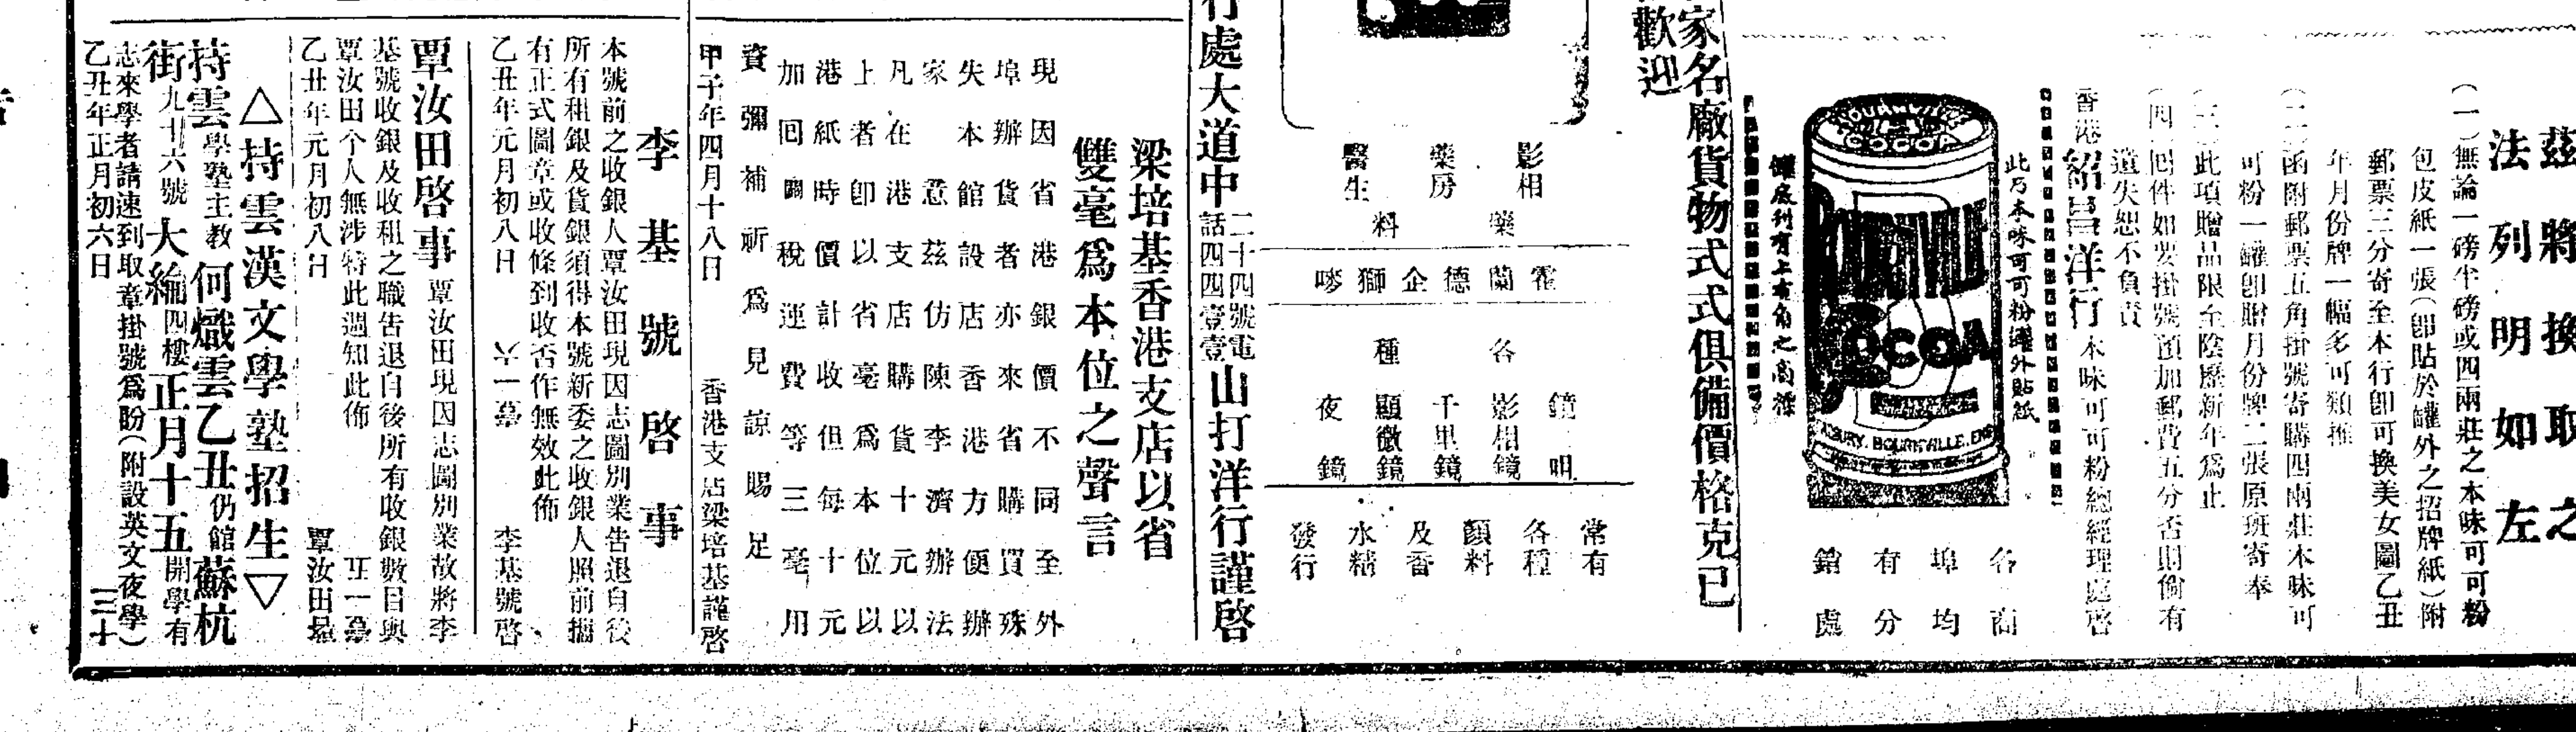 茲將換取之
法列明如左
(一)無論一磅半磅或四兩莊之本味可可粉
包皮紙一張(即貼於罐外之招牌紙)附
郵票三分寄至本行即可換美女圖乙丑
年月份牌一幅多可類推
(二)函附郵票五角掛號寄購四兩莊本味可
可粉一罐即贈月份牌二張原班寄奉
(三)此項贈品限至陰歷新年爲止
(四)囘件如要掛號預加郵費五分否則倘有
遺失恕不負責
香港紹昌洋行本味可可粉總經理處啓
此乃本味可可粉罐外貼紙
BOURNVILLE
COCOA
BOURNVILLE
COCOA
CADBURY, BOURNVILLE, ENG
罐底刋有上有角之商標
各商
埠均
有分
銷處
家名廠貨物式式俱備價格克已
歡迎
影相
藥房
醫生
藥料
霍蘭德企獅嘜
各種
鏡
影相鏡
千里鏡
顯微鏡
夜鏡
常有
各種
顏料
及香
水精
發行
行處大道中二十四號電話四四壹壹山打洋行謹啓
梁培基香港支店以省
雙毫爲本位之聲言
現因省港銀價不同至外
埠辦貨者亦來省購買殊
失本館設店香港方便辦
家意茲仿陳李濟辦法
凡在港支店購貨十元以
上者即以省毫爲本位以
港紙時價計收但每十元
加囘關稅運費等三毫用
資彌補祈爲見諒賜足
甲子年四月十八日 香港支店梁培基謹啓
李基號啓事
本號前之收銀人覃汝田現因志圖別業告退自後
所有租銀及貨銀須得本號新委之收銀人照前攜
有正式圖章或收條到收否作無效此佈
乙丑年元月初八日 六一臺 李基號啓
覃汝田啓事 覃汝田現因志圖別業故將李
基號收銀及收租之職告退自後所有收銀數目與
覃汝田个人無涉特此週知此佈
乙丑年元月初八日 覃汝田
△持雲漢文學塾招生▽
持雲學塾主教何熾雲乙丑仍館蘇杭
街九十六號大綸四樓正月十五開學有
志來學者請速到取章掛號爲盼(附設英文夜學)
乙丑年正月初六日 三十